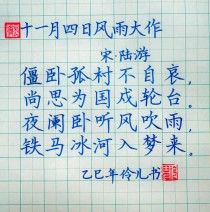 十一月四日风雨大作
宋·陆游
僵卧孤村不自哀，
尚思为国戍轮台．
夜阑卧听风吹雨，
铁马冰河入梦来．
乙巳年伶儿书